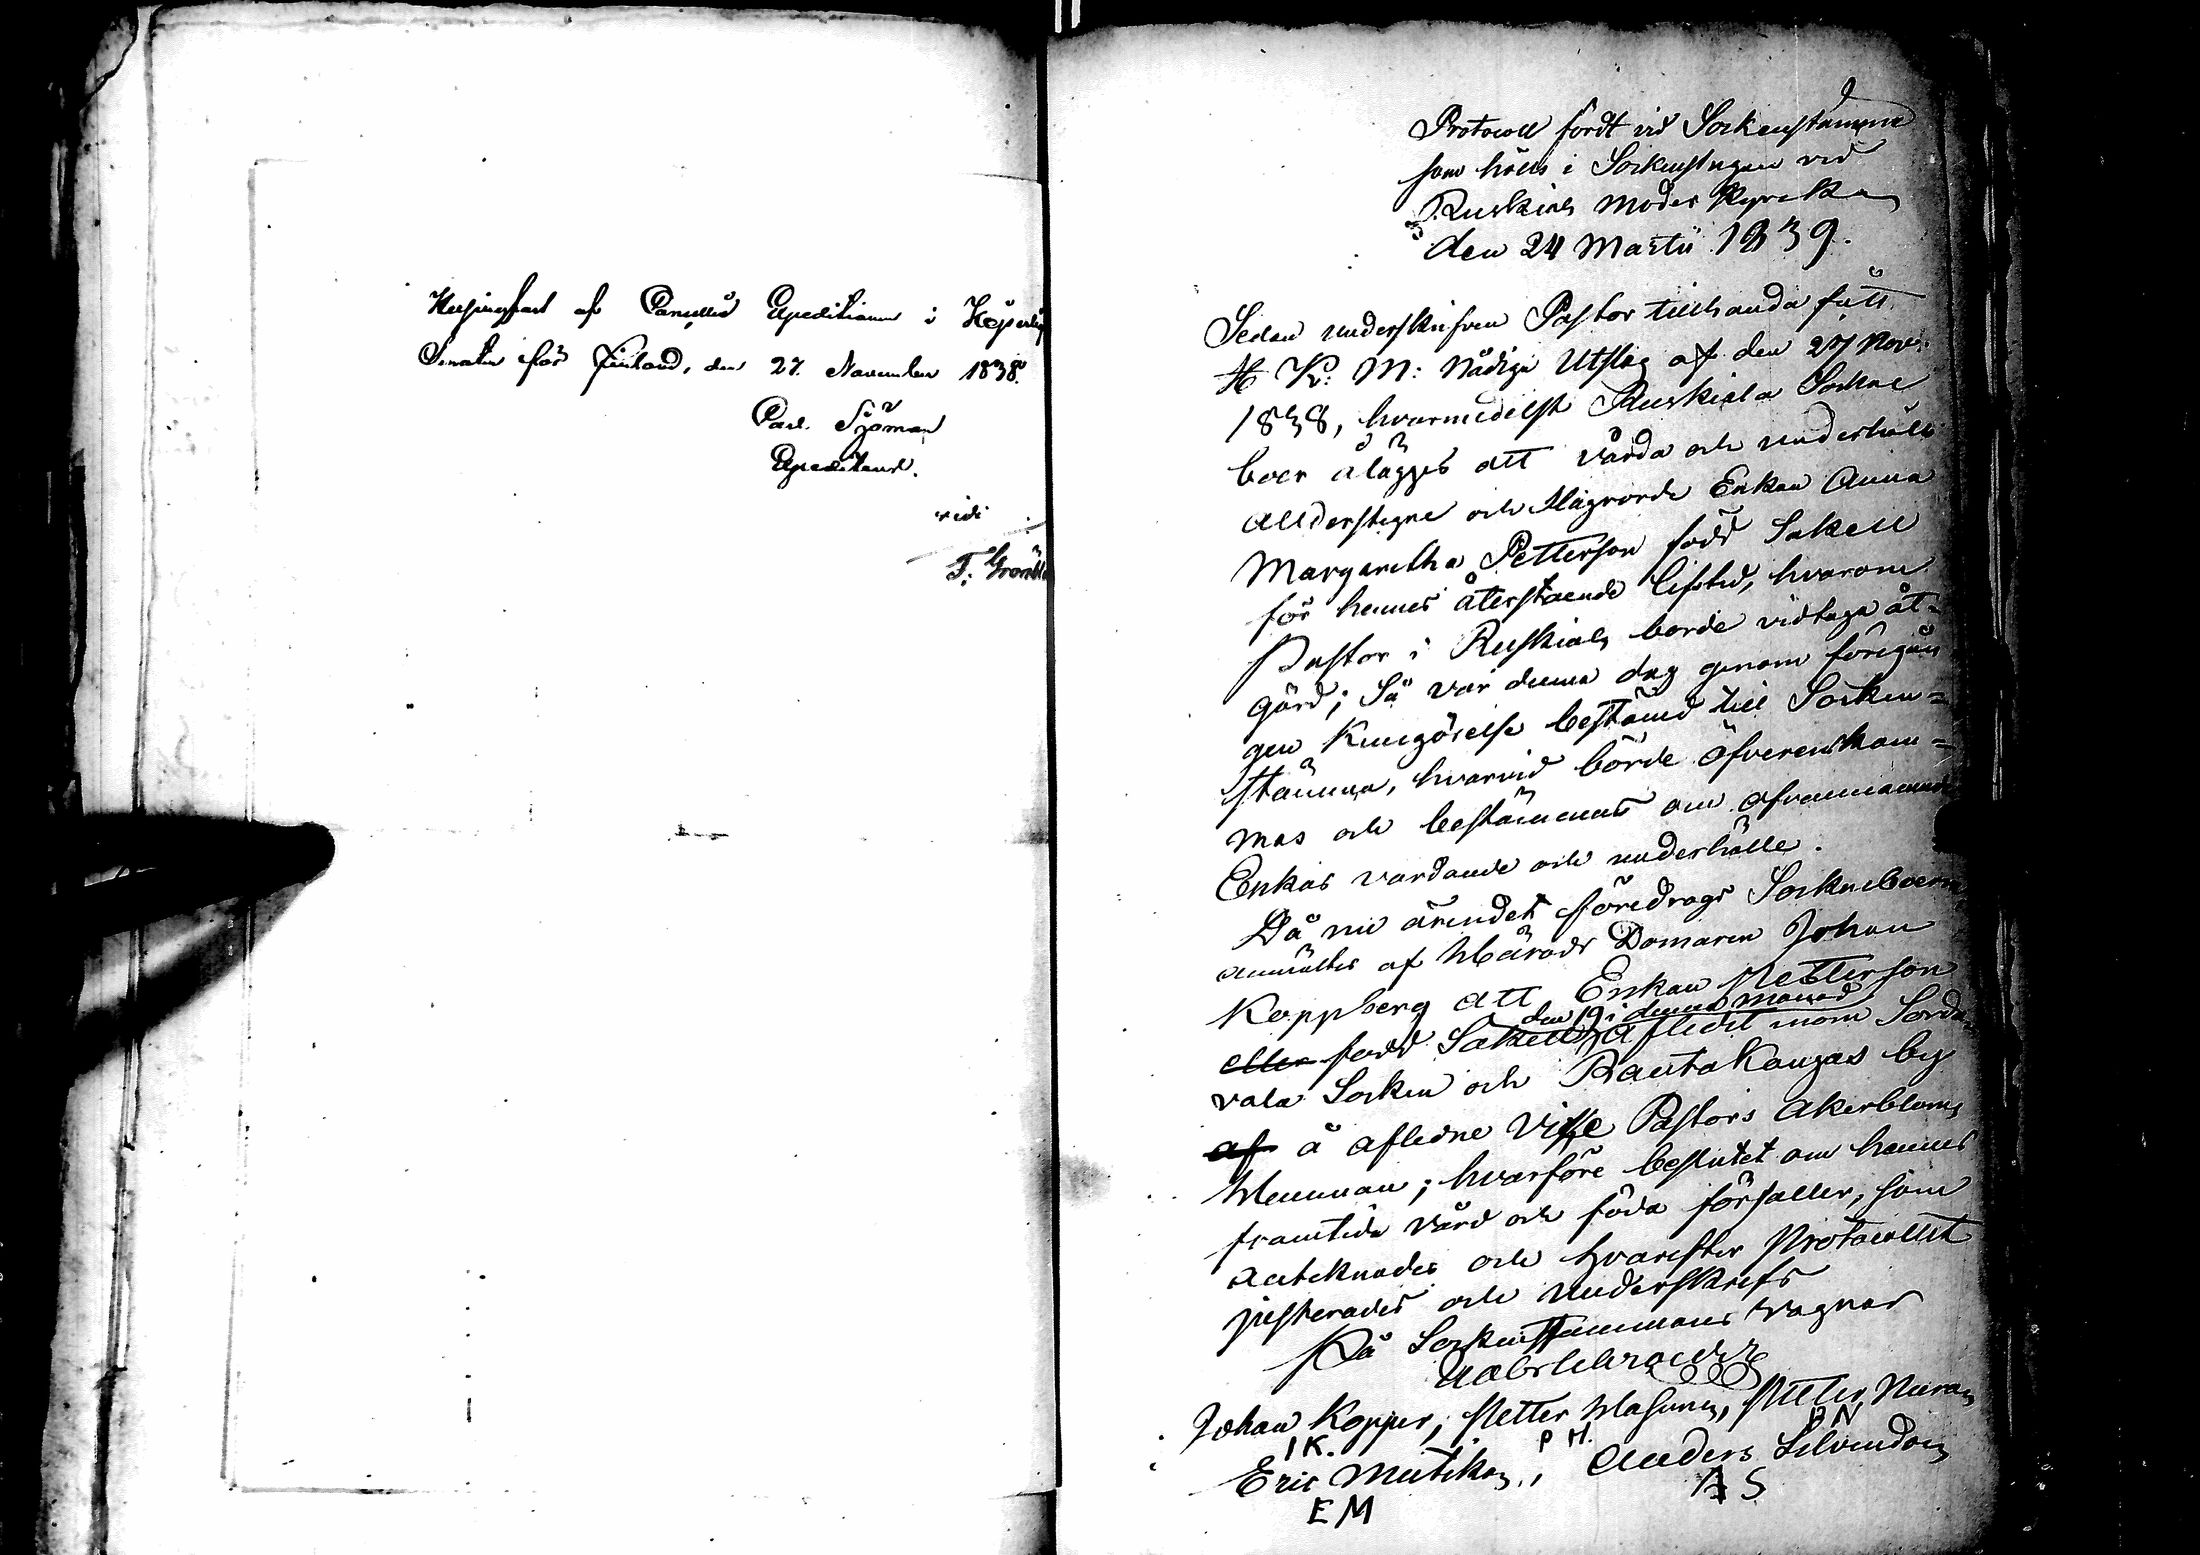 Helsingfors af Cancellie Expeditionen i Kejserliga
Senaten för Finland, den 27. November 1838.
Carl Sjöman
Expeditionel.
vidi
T. Grönbl
Protocoll fördt vid Sockenstämma
som hölls i Sockenstugan vid
Ruskiala Moder Kyrcka
den 24 Martii 1839.
Sedan underskrifven Pastor tillhanda fått
H K: M: Nådiga Utslag af den 27 Nov:
1838, hvarmedelst Ruskiala Sockne
boer ålägges att vårda och underhålla
Allderstegne och Enkan Anna
Margaretha Petterson född Sakell
för hennes återstående lifstid, hvarom
Pastor i Ruskiala borde vidtaga åt-
gärd; Så var denna dag genom föregån
gen Kungörelse bestämd till Socken-
stämma, hvarvid börde öfverenskom-
mas och bestämmas om ofvannämnde
Enkas vårdande och underhålle.
Då nu ärendet föredrags Sockneboerne
anmältes af Härads Domaren Johan
Koppberg att Enkan Petterson
den 19 i denna månad
eller född Sakell aflidit inom Sorda
vala Socken och Rautakangas by
af å aflidne Vice Pastors Akerbloms
Hemman; hvarföre beslutet om hennes
framtida vård och föda förfaller, som
antecknades och hvarefter Protocollet
justerades och underskrefs
På Sockenstämmans vägnar
Johan Kopper, Petter Hasunen, Petter Nuran
IK. P H. P N
Eric Mutikan, Anders Silvendon
E M A S